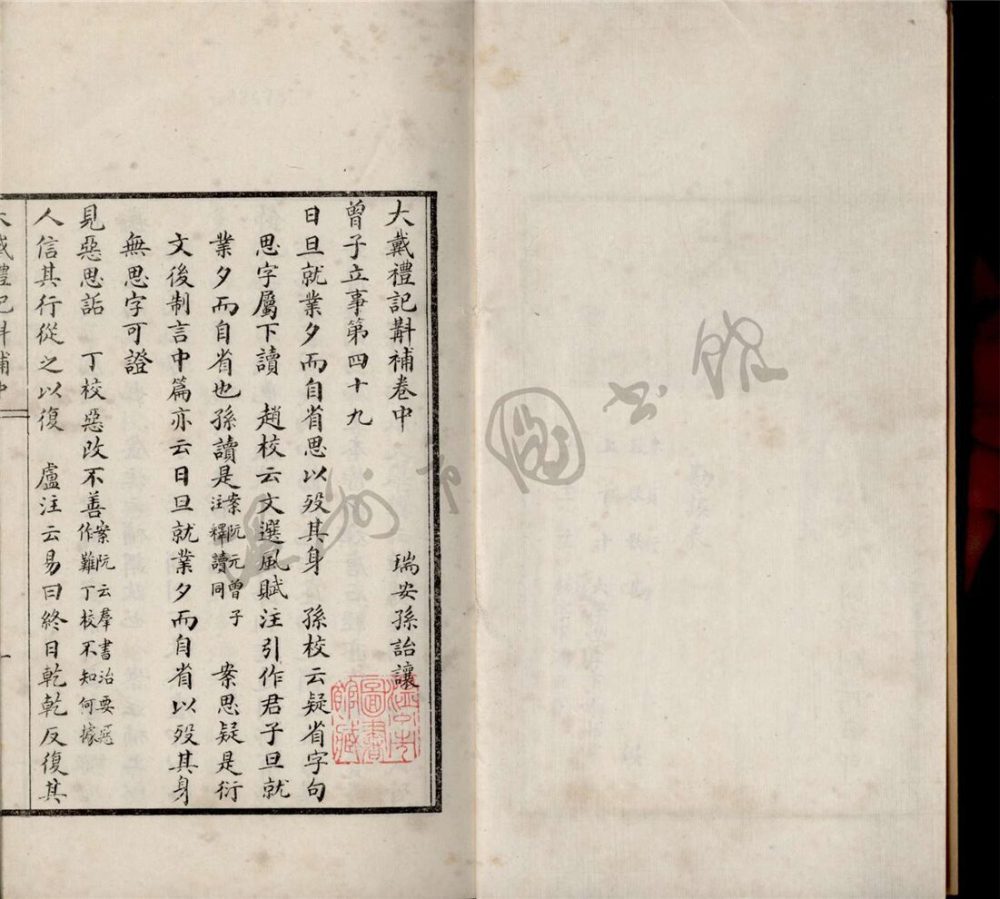 大戴禮記斠補卷中
瑞安孫詒讓
曾子立事第四十九
日旦就業夕而自省思以歿其身　孫校云疑省字句
思字屬下讀　趙校云文選風賦注引作君子旦就
業夕而自省也孫讀是案阮元曾子注釋讀同　案思疑是衍
文後制言中篇亦云日旦就業夕而自省以歿其身
無思字可證
見惡思詬　丁校惡改不善案阮云羣書治要惡作難丁校不知何據
人信其行從之以復　盧注云易曰終日乾乾反復其
大戴禮記斠補中
一
溫州市圖書館
溫州市圖書館藏